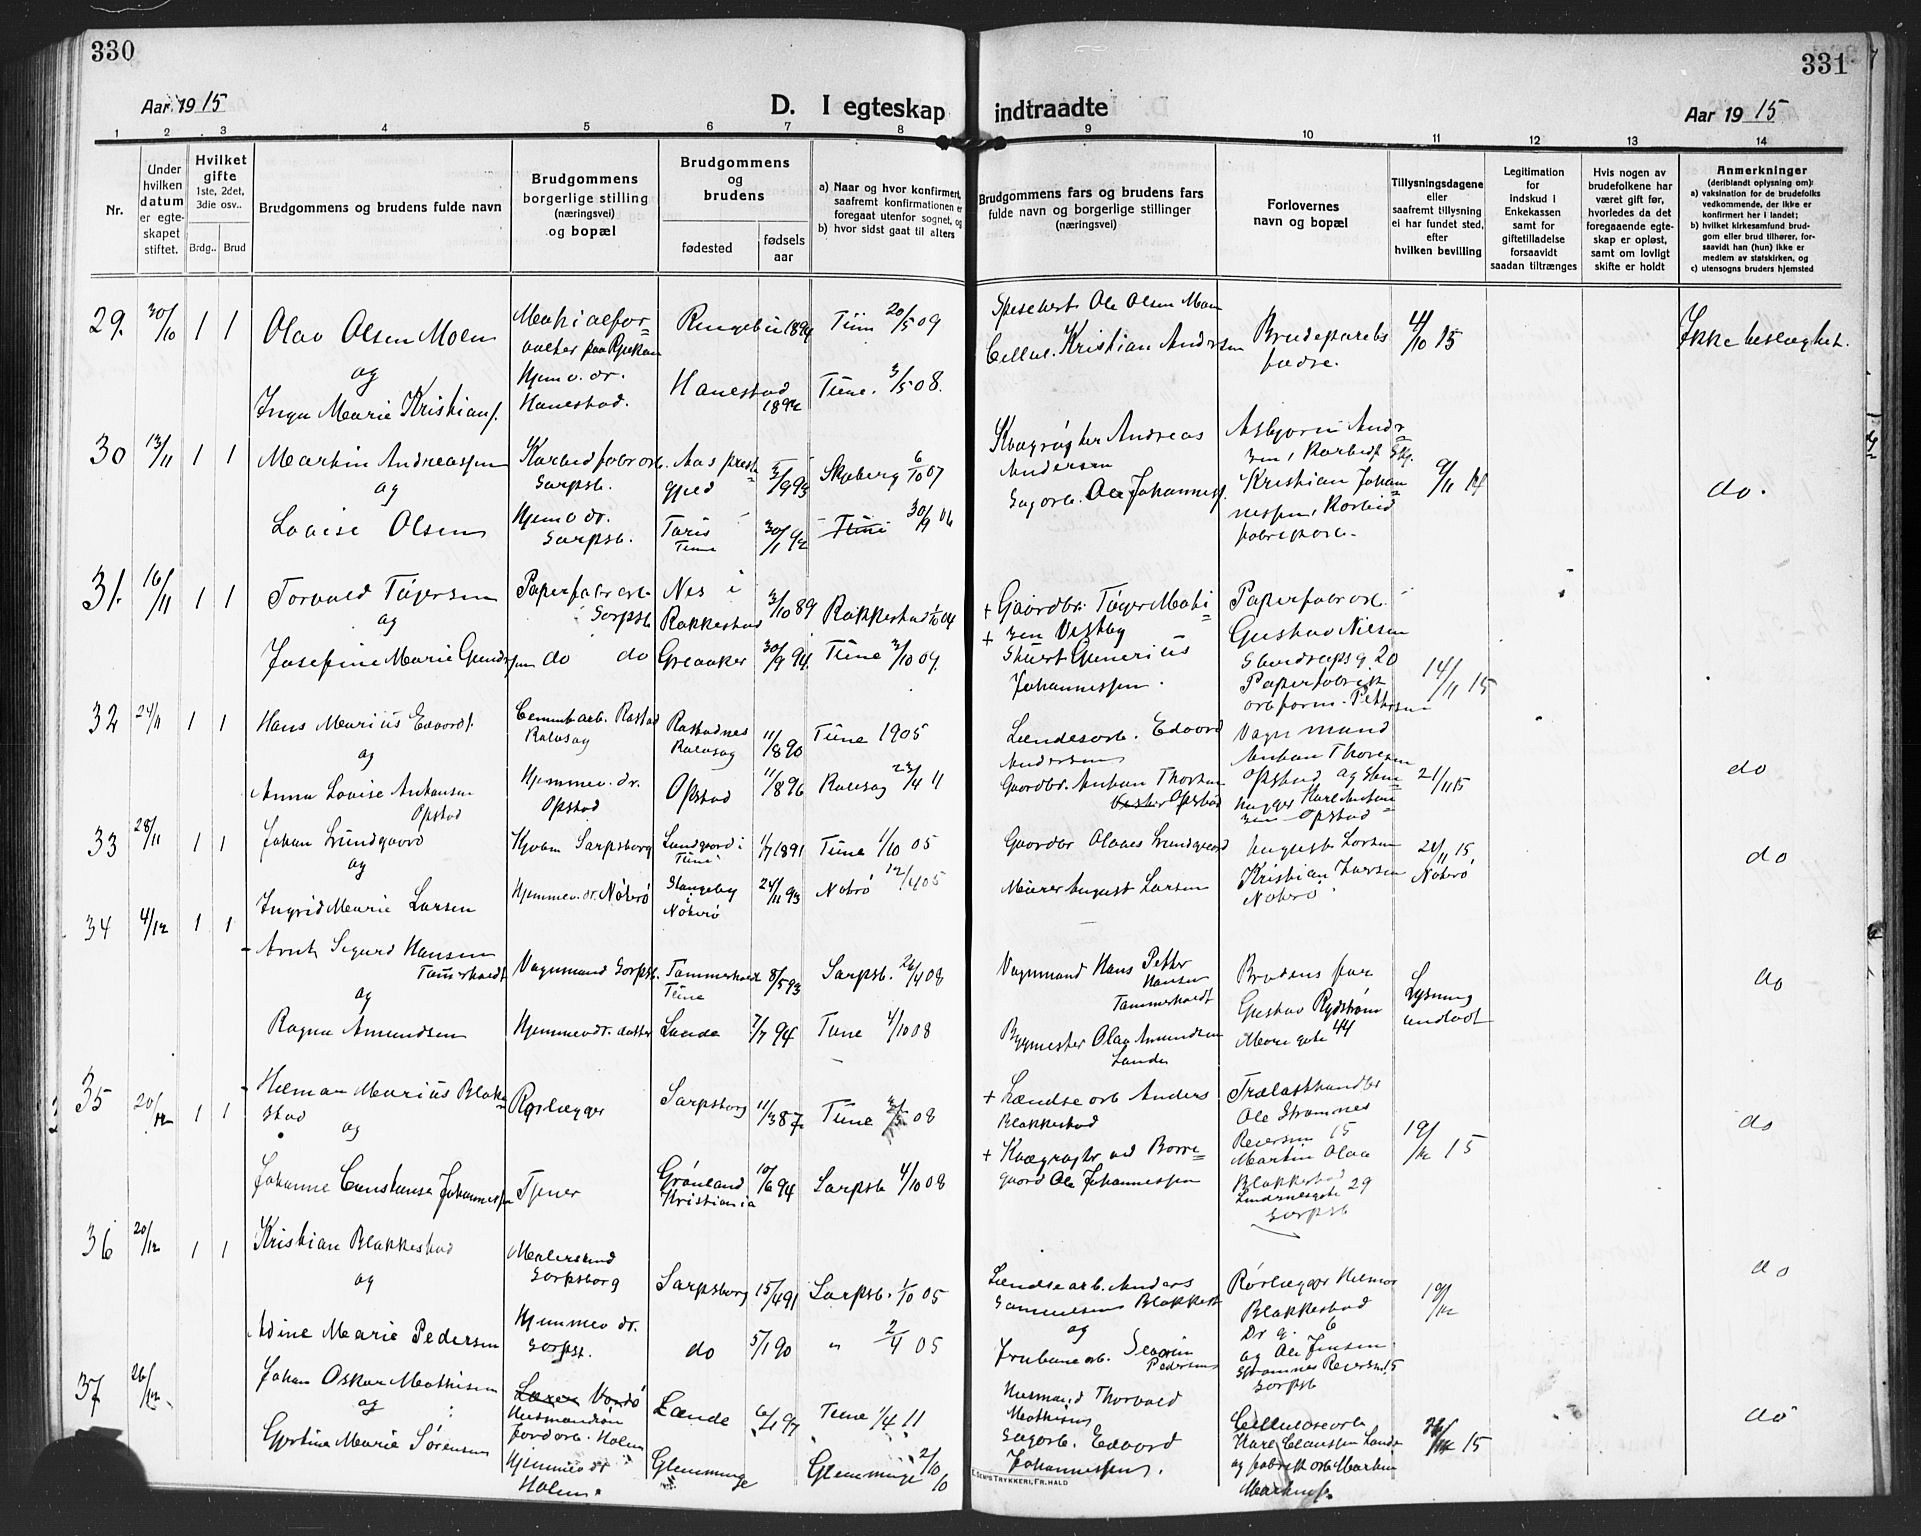 330
331
Aar 1915
D. I egteskap indtraadte
Aar 1915
1 2 3 4 5 6 7 8 9 10 11 12 13 14
Nr.
Under hvilken datum er egteskapet stiftet.
Hvilket gifte 1ste, 2det, 3die osv..
Brdg.. Brud
Brudgommens og brudens fulde navn
Brudgommens borgerlige stilling (næringsvei) og bopæl
Brudgommens og brudens
fødested
fødsels aar
a) Naar og hvor konfirmert, saafremt konfirmationen er foregaat utenfor sognet, og
b) hvor sidst gaat til alters
Brudgommens fars og brudens fars fulde navn og borgerlige stillinger (næringsvei)
Forlovernes navn og bopæl
Tillysningsdagene eller saafremt tillysning ei har fundet sted, efter hvilken bevilling
Legitimation for indskud i Enkekassen samt for giftetilladelse forsaavidt saadan tiltrænges
Hvis nogen av brudefolkene har været gift før, hvorledes da det foregaaende egteskap er opløst, samt om lovligt skifte er holdt
Anmerkninger
(deriblandt oplysning om):
a) vaksination for de brudefolks vedkommende, der ikke er konfirmert her i landet;
b) hvilket kirkesamfund brudgom eller brud tilhører, forsaavidt han (hun) ikke er medlem av statskirken, og
c) utensogns bruders hjemsted
29. 30/10 1 1 Olav Olsen Moen
Ringebu 1894 Tune 20/5 09
Ole Olsen Moen
Brudeparets fædre.
4/10 15
Ikke beslægtet.
og
Inga Marie Kristians.
Hjemv. dr. Hanestad.
Hanestad 1892
Tune. 3/5 08.
Cellul. Kristian Andersen
30 13/11 1 1 Martin Andreassen
Karbidfabrarb. Sarpsb.
Aas prestegjeld
Skjeberg 6/10 07
Kvægrøgter Andreas Andersen
Asbjørn Andersen, Karbidf
9/11
do.
og
Lovise Olsen
Hjemv dr. Sarpsb.
Tune
30/1 92
30/9 06
Sagarb. Ole Johanness.
Kristian Johannessen, Karbidfabrikarb.
31. 16/11 1 1 Torvald Tøgersen
Papirfabrarb. Sarpsb
Nes i Rakkestad
3/10 89
Rakkestad 1/10 04
+ Gaardbr. Tøger Mathisen Vestby
Papirfabrarb. Gustav Nilsen
og
Josefine Marie Gundersen
do do
Greaaker
30/9 94.
Tune 3/10 09.
+ Gunerius Johannessen.
Papirfabrik arbform. Pettersen
14/11 15
32 24/11 1 1 Hans Marius Edvards.
Cementarb. Rastad Kalesag
Rastadnes
11/8 90
Tune 1905
Lændsearb. Edvard Andersen
Vognmand Anton Thoresen Opstad og Stenhugger Karl Antonsen Opstad
21/11 15
do
og
Anna Lovise Antonsen Opstad
Hjemmev. dr. Opstad
Opstad
11/8 96
23/4 11
Gaardbr. Anton Thoresen Opstad
33 28/11 1 1 Johan Lundgaard
Sarpsborg
Lundgaard i Tune
1/7 1891
Tune 1/10 05
Gaardbr Olaves Lundgaard
August Larsen
21/11 15
do
og
Ingrid Marie Larsen
Hjemmev. dr. Nøterø
Stangeby Nøterø
24/11 93
Nøterø 12/4 05
Murer August Larsen
Kristian Larsen Nøterø
Nøterø
34 4/12 1 1 Arnt Sigurd Hansen Tammerholdt
Vognmand Sarpsb.
Tammerholdt Tune
8/5 93
Sarpsb. 26/4 08
Vognmand Hans Petter Hansen Tammerholdt
Brudens far
Gustav Rydstrøm
44
Lysning undlodt
do
og
Ragna Amundsen
Hjemmev dr. datter
Lande
7/7 94
Tune 4/10 08
Bygmester Olav Amundsen Lande
35 20/12 1 1 Hilmar Marius Blakkestad
Rørlægger
Sarpsborg
11/3 87
Tune 3/5 08
+ Lændse arb Anders Blakkestad
Trælasthandler Ole Strømnes Reiersen 15
19/12 15
do
og
Johanne Constanse Johannessen
Tjener
Grønland Kristiania
10/6 94
Sarpsb 4/10 08
+ Kvægrøgter ved Borregaard Ole Johannessen
Martin Olav Blakkestad
29
Sarpsb
36 20/12 1 1 Kristian Blakkestad
Malersvend Sarpsborg
Sarpsborg
15/4 91
Sarpsb. 1/10 05
Lændsearb. Anders Samuelsen Blakkest
Rørlægger Hilmar Blakkestad
Dr g. 6
19/12
do
og
Adine Marie Pedersen
Hjemmev dr. Sarpsb.
do
5/1 90
" 2/4 05
og
Severin Pedersen
og Ole Jensen
Strømnes Reiersn. 15
Sarpsb
37 26/12 Johan Oskar Mathisen
Husmandsøn Jordarb. Holm
Lande
6/1 97
Tune 1/4 11
Husmand Thorvald Mathisen
Cellulosearb Karl Claussen Lande
26/12 15
do
og
Gjertine Marie Sørensen
Hjemmev dr Holm.
Glemminge
Glemminge 2/10 10
Sagarb. Edvard Johannessen.
og fabrikk arb Martin Markus.
TRYKKERI, FR.HALD